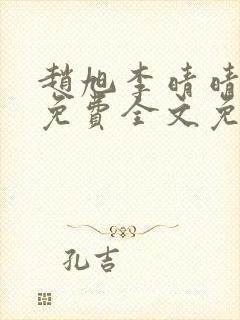 趙旭李晴晴
免費全文免
孔吉